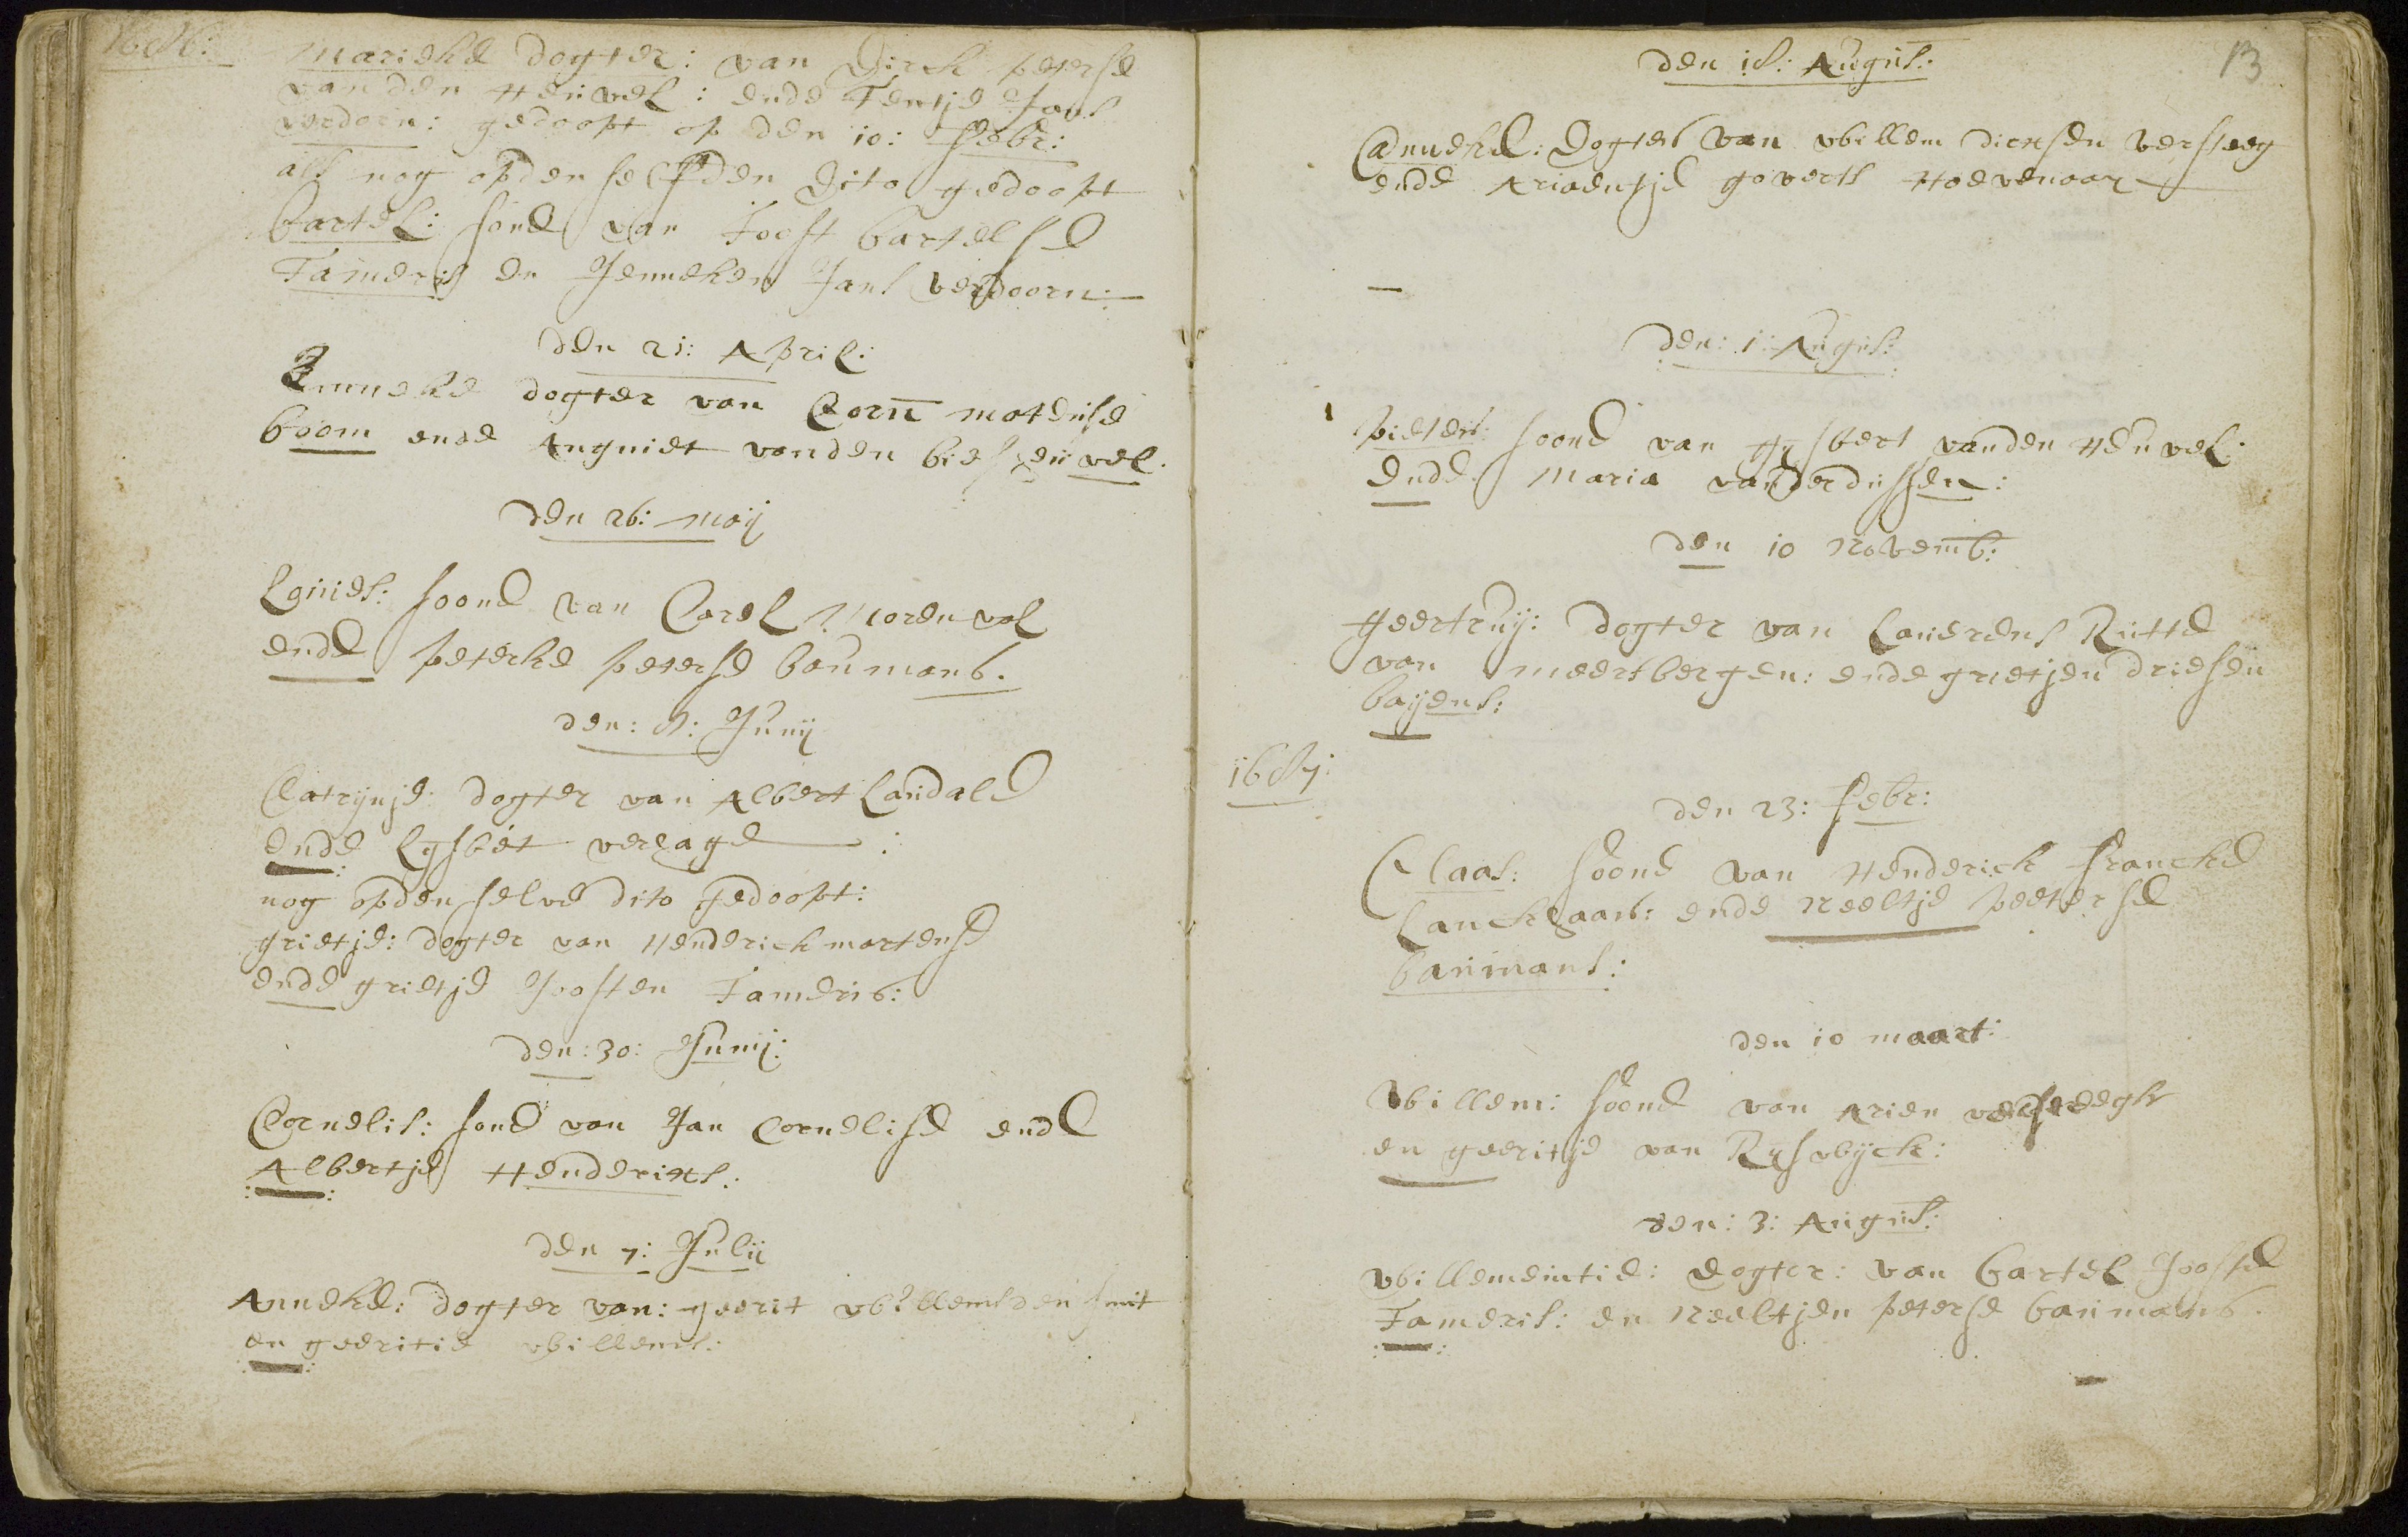 1686:
Marieke dogter: van Dirck peterse
van den Heuvel: ende Tentje Jans
verdorn: gedoopt op den 10: febr:
als nog op den selfden Dito gedoopt
Bartel: sone van Joost bartelse
Tameris en Jenneken Jans verdoorn:
den 21: April:
Anneke dogter van Corn mateuse
boom ende Angniet vanden bieseuvel.
den 26: maij
Louies: soone van Carel Morenvol
ende peterke peterse boumans.
den: 8: Junij
Catrijnje: dogter van Albert Landale
ende Lysbet verhage:
nog op den selve dito gedoopt:
grietje: dogter van Henderick martense
ende grietje Joosten Tameris:
den: 30: Junij:
Cornelis: sone van Jan Cornelise ende
Albertje Hendericks:
den 7: Julij
Anneke: dogter van: geerit willemsden smit
en geeritie willems:
13
den 18: August:
Anneke: dogter van willem dircksen versteeg
ende Ariaentje goverts Hoevenaar
den: 1: Augus:
pieter: soone van Gysbert vanden Heuvel:
ende Maria vanderdussen:
den 10 Novemb:
Geertruy: dogter van Lauerens Rutte
van meertbergen: ende grietjen driesen
baijens:
1687:
den 23: febr:
Claas: soone van Henderick francke
Lanckhaar: ende Neeltje peeterse
baumans:
den 10 maart:
Willem: soone van Arien versteegh
en geeritje van Ryswijck:
den: 3: August:
willemeintie: dogter: van bartel Jooste
Tameris: en Neeltjen peterse baumans.